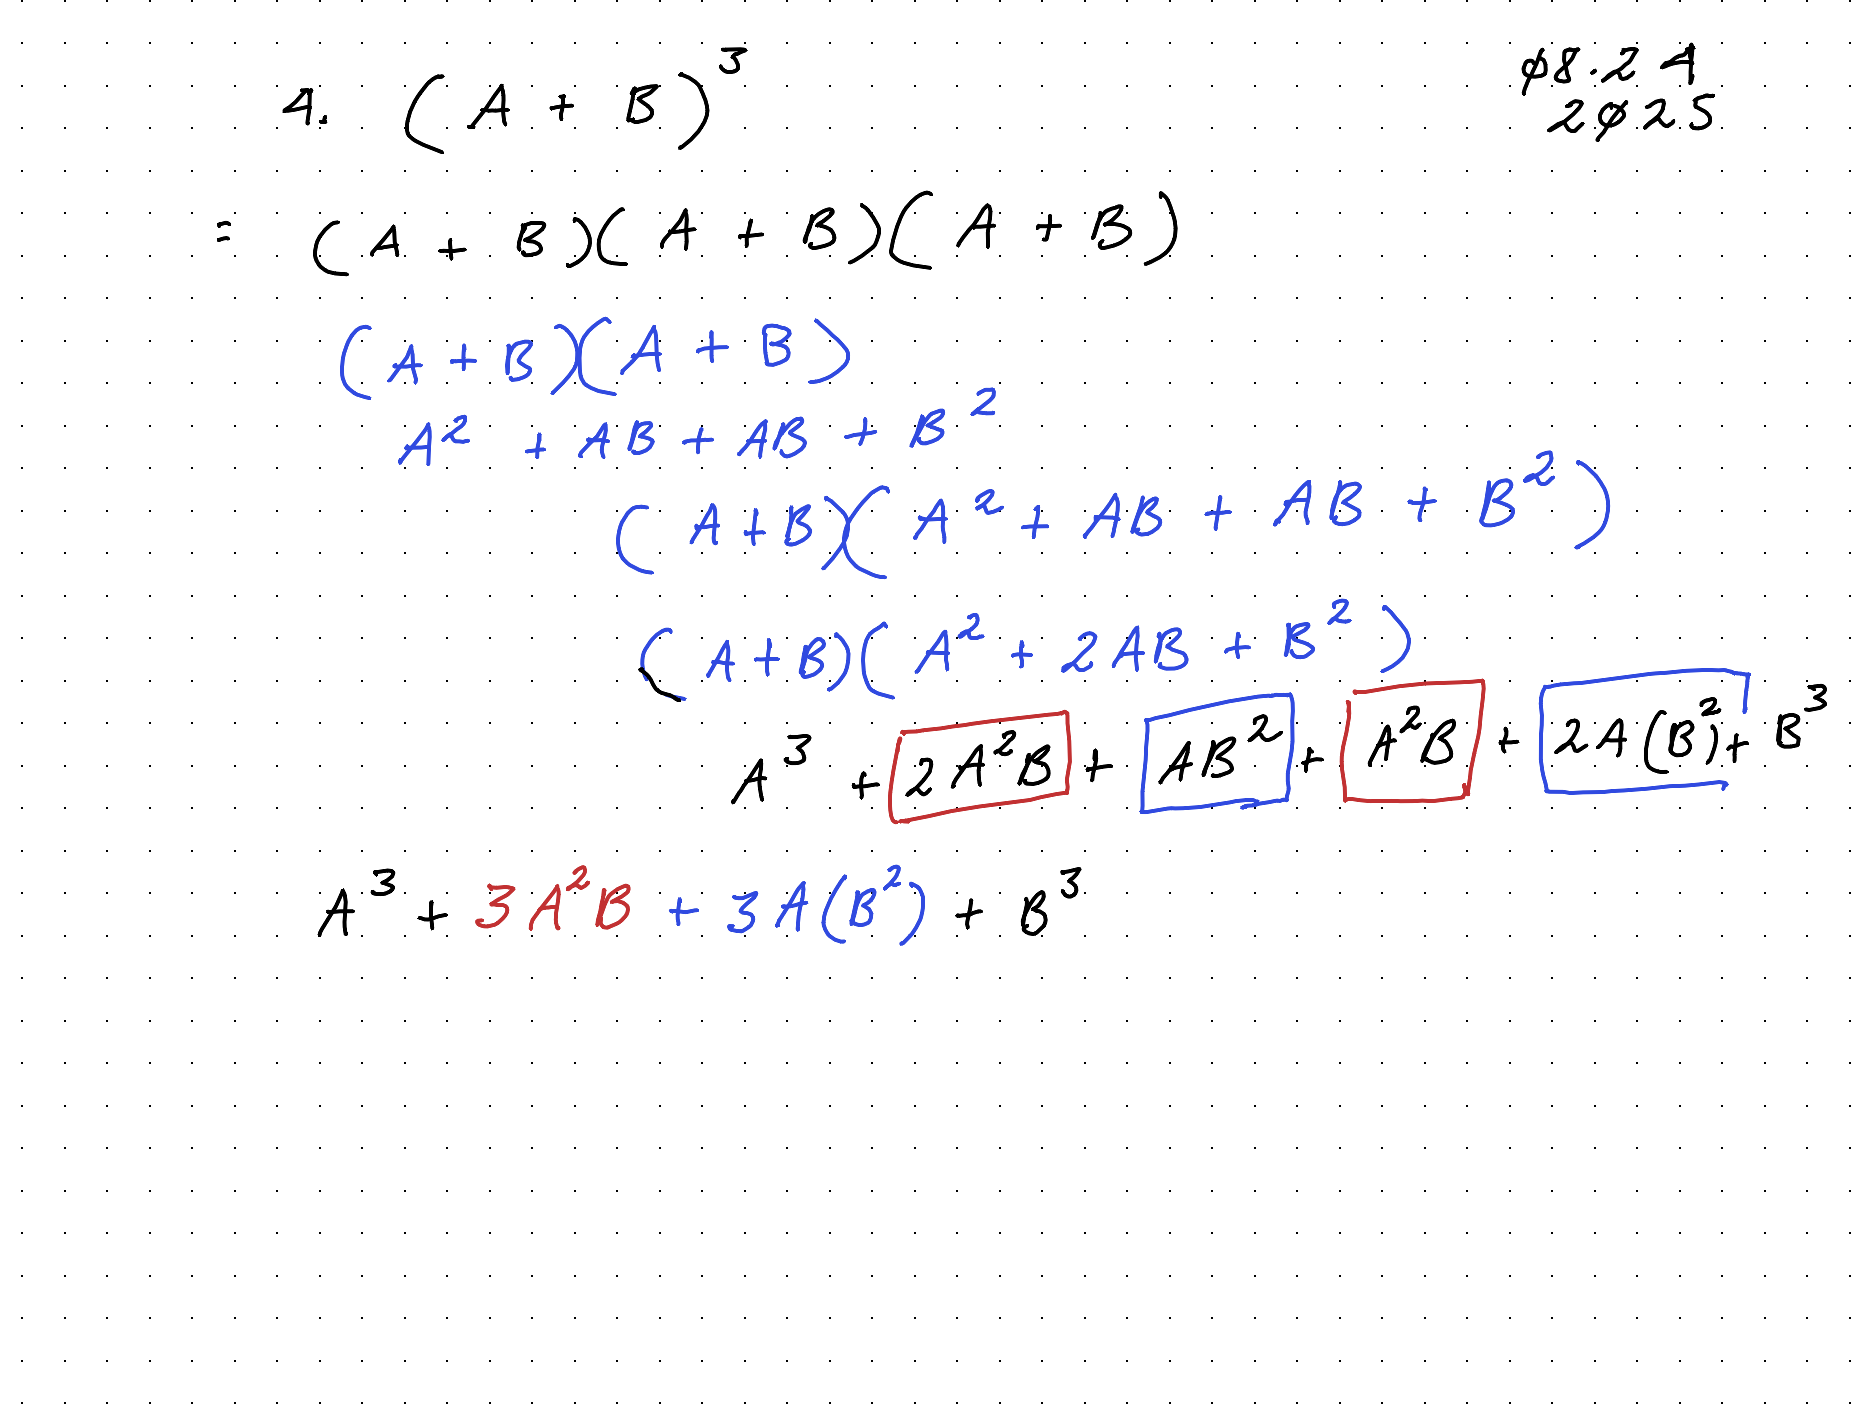 4. (A + B)³
ø8.24
2ø25
= (A + B)(A + B)(A + B)
(A + B)(A + B)
A² + AB + AB + B²
(A+B)(A² + AB + AB + B²)
(A+B)(A² + 2AB + B²)
A³ + 2A²B + AB² + A²B + 2A(B²) + B³
A³ + 3A²B + 3A(B²) + B³